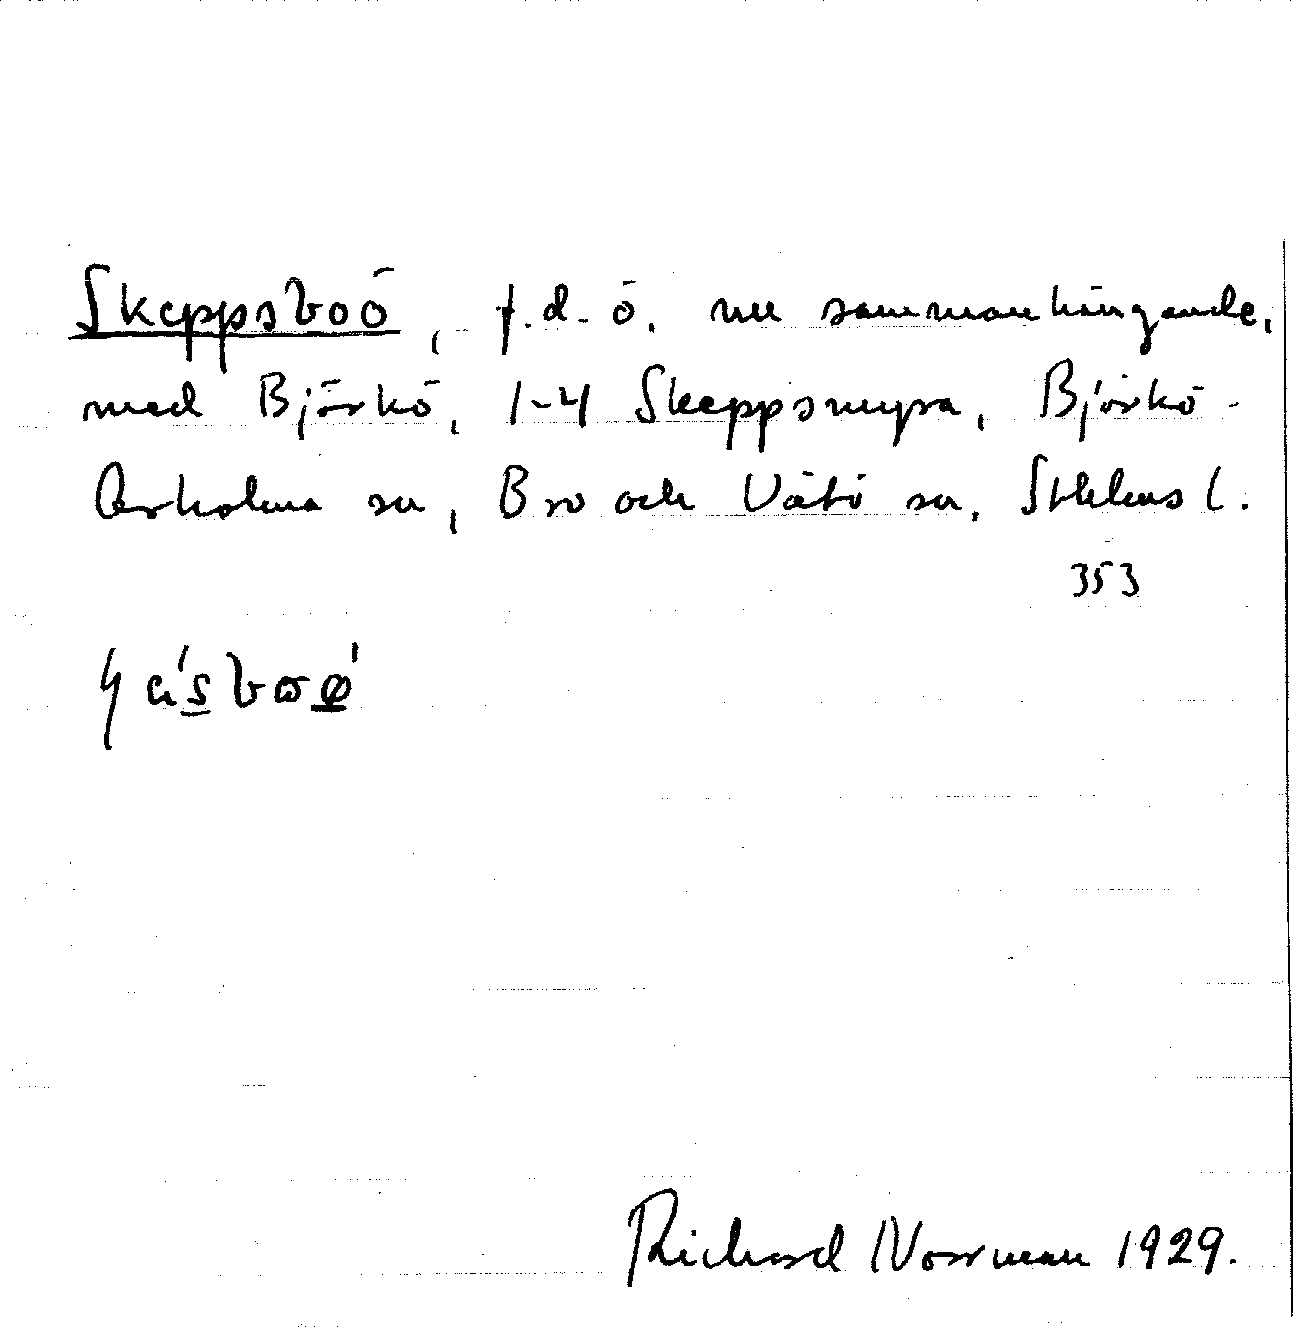 Skeppsboö, f.d. ö, nu sammanhängande,
med Björkö, 1-4 Skeppsmyra, Björkö-
Arholma sn, Bro och Vätö sn. Sthlms l.
353
Richard Norrman 1929.